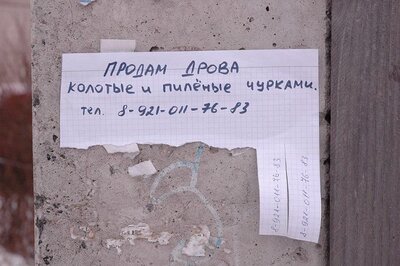 ПРОДАМ ДРОВА
КОЛОТЫЕ И ПИЛЁНЫЕ ЧУРКАМИ.
тел. 8-921-011-76-83
8-921-011-76-83
8-921-011-76-83